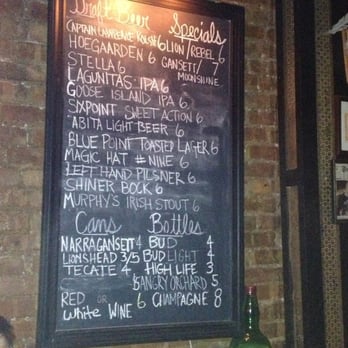 Draft Beer Specials
CAPTAIN LAWRENCE KOLSH 6 LION / REBEL 6
HOEGAARDEN 6 GANSETT / 7
STELLA 6 MOONSHINE
LAGUNITAS IPA 6
GOOSE ISLAND IPA 6
SIXPOINT SWEET ACTION 6
ABITA LIGHT BEER 6
BLUE POINT TOASTED LAGER 6
MAGIC HAT #NINE 6
LEFT HAND PILSNER 6
SHINER BOCK 6
MURPHY'S IRISH STOUT 6
Cans Bottles
NARRAGANSETT 4 BUD 4
LIONSHEAD 3/5 BUD LIGHT 4
TECATE 4 HIGH LIFE 3
ANGRY ORCHARD 5
RED OR 6 CHAMPAGNE 8
White WINE